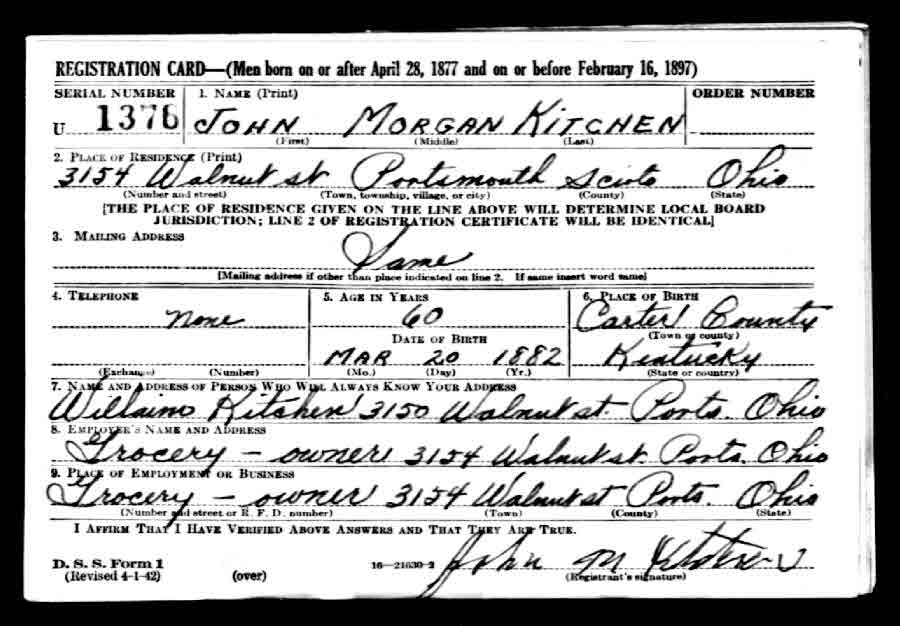 REGISTRATION CARD—(Men born on or after April 28, 1877 and on or before February 16, 1897)
SERIAL NUMBER 1. NAME (Print) ORDER NUMBER
U 1376 JOHN MORGAN KITCHEN
(First) (Middle) (Last)
2. PLACE OF RESIDENCE (Print)
3154 Walnut st Portsmouth Scioto Ohio
(Number and street) (Town, township, village, or city) (County) (State)
[THE PLACE OF RESIDENCE GIVEN ON THE LINE ABOVE WILL DETERMINE LOCAL BOARD
JURISDICTION; LINE 2 OF REGISTRATION CERTIFICATE WILL BE IDENTICAL]
3. MAILING ADDRESS
Same
[Mailing address if other than place indicated on line 2. If same insert word same]
4. TELEPHONE 5. AGE IN YEARS 6. PLACE OF BIRTH
None 60 Carter County
DATE OF BIRTH (Town or county)
MAR 20 1882 Kentucky
(Exchange) (Number) (Mo.) (Day) (Yr.) (State or country)
7. NAME AND ADDRESS OF PERSON WHO WILL ALWAYS KNOW YOUR ADDRESS
Willaim Kitchen 3150 Walnut st. Ports. Ohio
8. EMPLOYER'S NAME AND ADDRESS
Grocery – owner 3154 Walnut st. Ports. Ohio
9. PLACE OF EMPLOYMENT OR BUSINESS
Grocery – owner 3154 Walnut st Ports. Ohio
(Number and street or R. F. D. number) (Town) (County) (State)
I AFFIRM THAT I HAVE VERIFIED ABOVE ANSWERS AND THAT THEY ARE TRUE.
John M Kitchen
D. S. S. Form 1 16—21630-2 (Registrant's signature)
(Revised 4-1-42) (over)